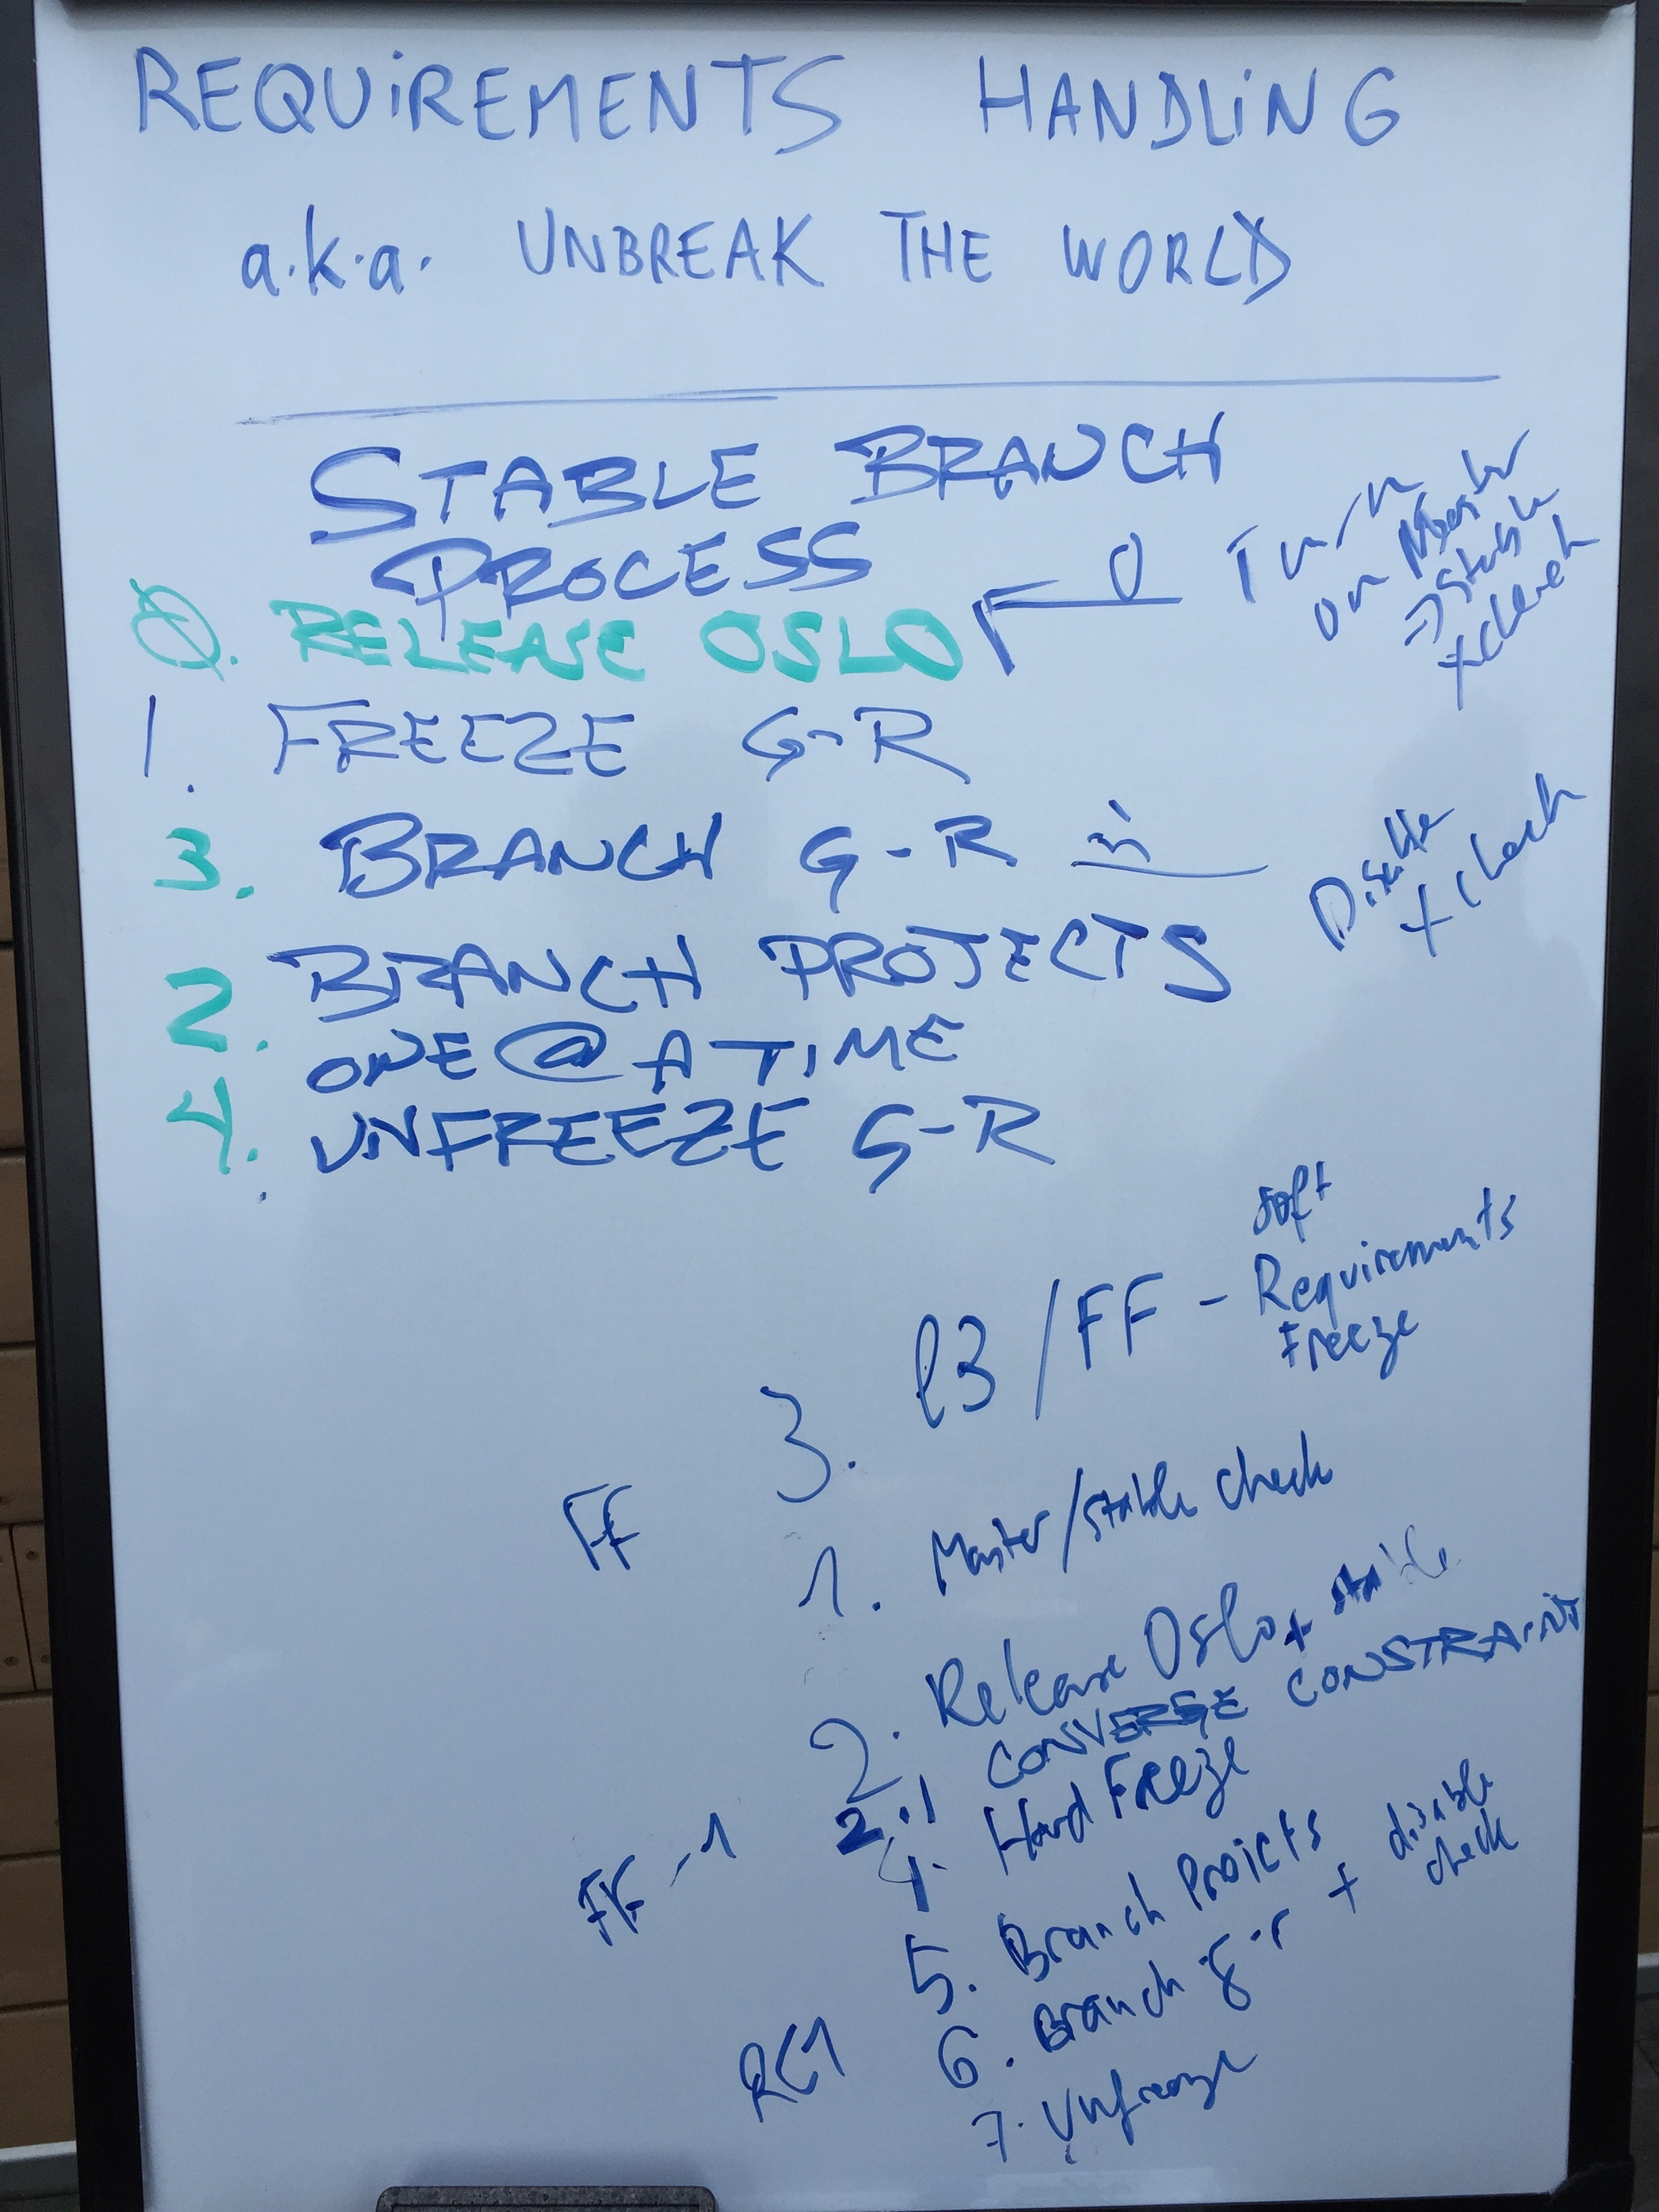 REQUIREMENTS HANDLING
a.k.a. UNBREAK THE WORLD
STABLE BRANCH
PROCESS
0. RELEASE OSLO
0 Turn
on Master
=> Stable
x check
1. FREEZE G-R
3. BRANCH G-R 3
Disable
x check
2. BRANCH PROJECTS
ONE @ A TIME
4. UNFREEZE G-R
3. l3/FF - soft
Requirements
Freeze
FF
1. Master/stable check
2. Release Oslo + stable
2.1 CONVERGE CONSTRAINTS
FF -1
4. Hard Freeze
5. Branch Projects
6. Branch g-r + disable
check
RC1
7. Unfreeze